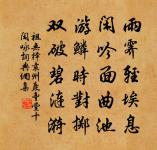 雨霁轻埃息
闲吟面曲池
游鳞时对掷
双破碧涟漪
祖无择袁州庆丰堂十
闲咏词典网集